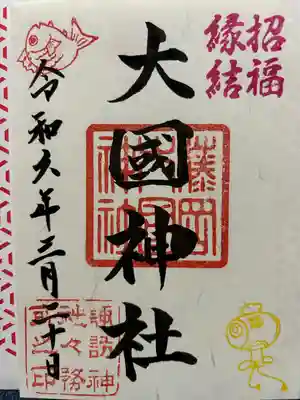 招福
縁結
大國神社
令和六年三月二十日
諏訪神
社々務
所之印